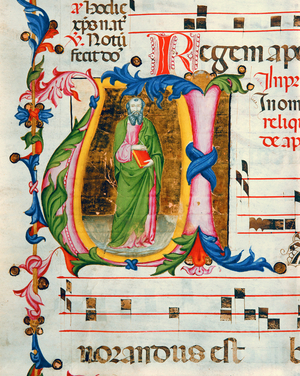 ℟ Hodie
xps nat
℣. Notū
fecit do
Regem apo
In pr
In nom
reliq
de ap
norandus est b